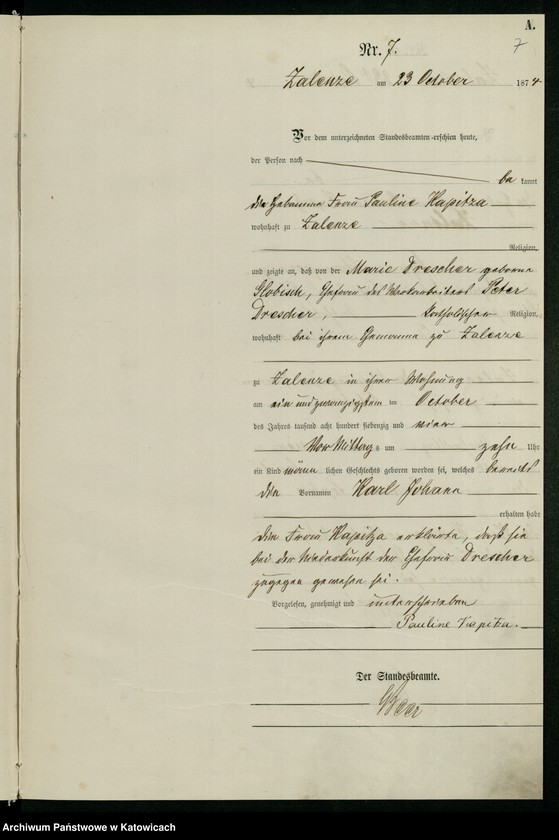 A.
7
Nr. 7.
Zalenze am 23 October 1874
Vor dem unterzeichneten Standesbeamten erschien heute,
der Person nach
be kannt
die Hebamme Frau Pauline Kapitza
wohnhaft zu Zalenze
Religion,
und zeigte an, daß von der Marie Drescher geborne
Globisch, Ehefrau des Peter
Drescher, katholischer Religion,
wohnhaft bei ihrem Ehemanne zu Zalenze
zu Zalenze in ihrer Wohnung
am ein und zwanzigsten im October
des Jahres tausend acht hundert siebenzig und vier
Vor Mittags um zehn Uhr
ein Kind männ lichen Geschlechts geboren worden sei, welches bereits
die Vornamen Karl Johann
erhalten habe
Die Frau Kapitza erklärte, daß sie
bei der Niederkunft der Ehefrau Drescher
zugegen gewesen sei.
Vorgelesen, genehmigt und unterschrieben
Pauline Kapitza.
Der Standesbeamte.
Archiwum Państwowe w Katowicach